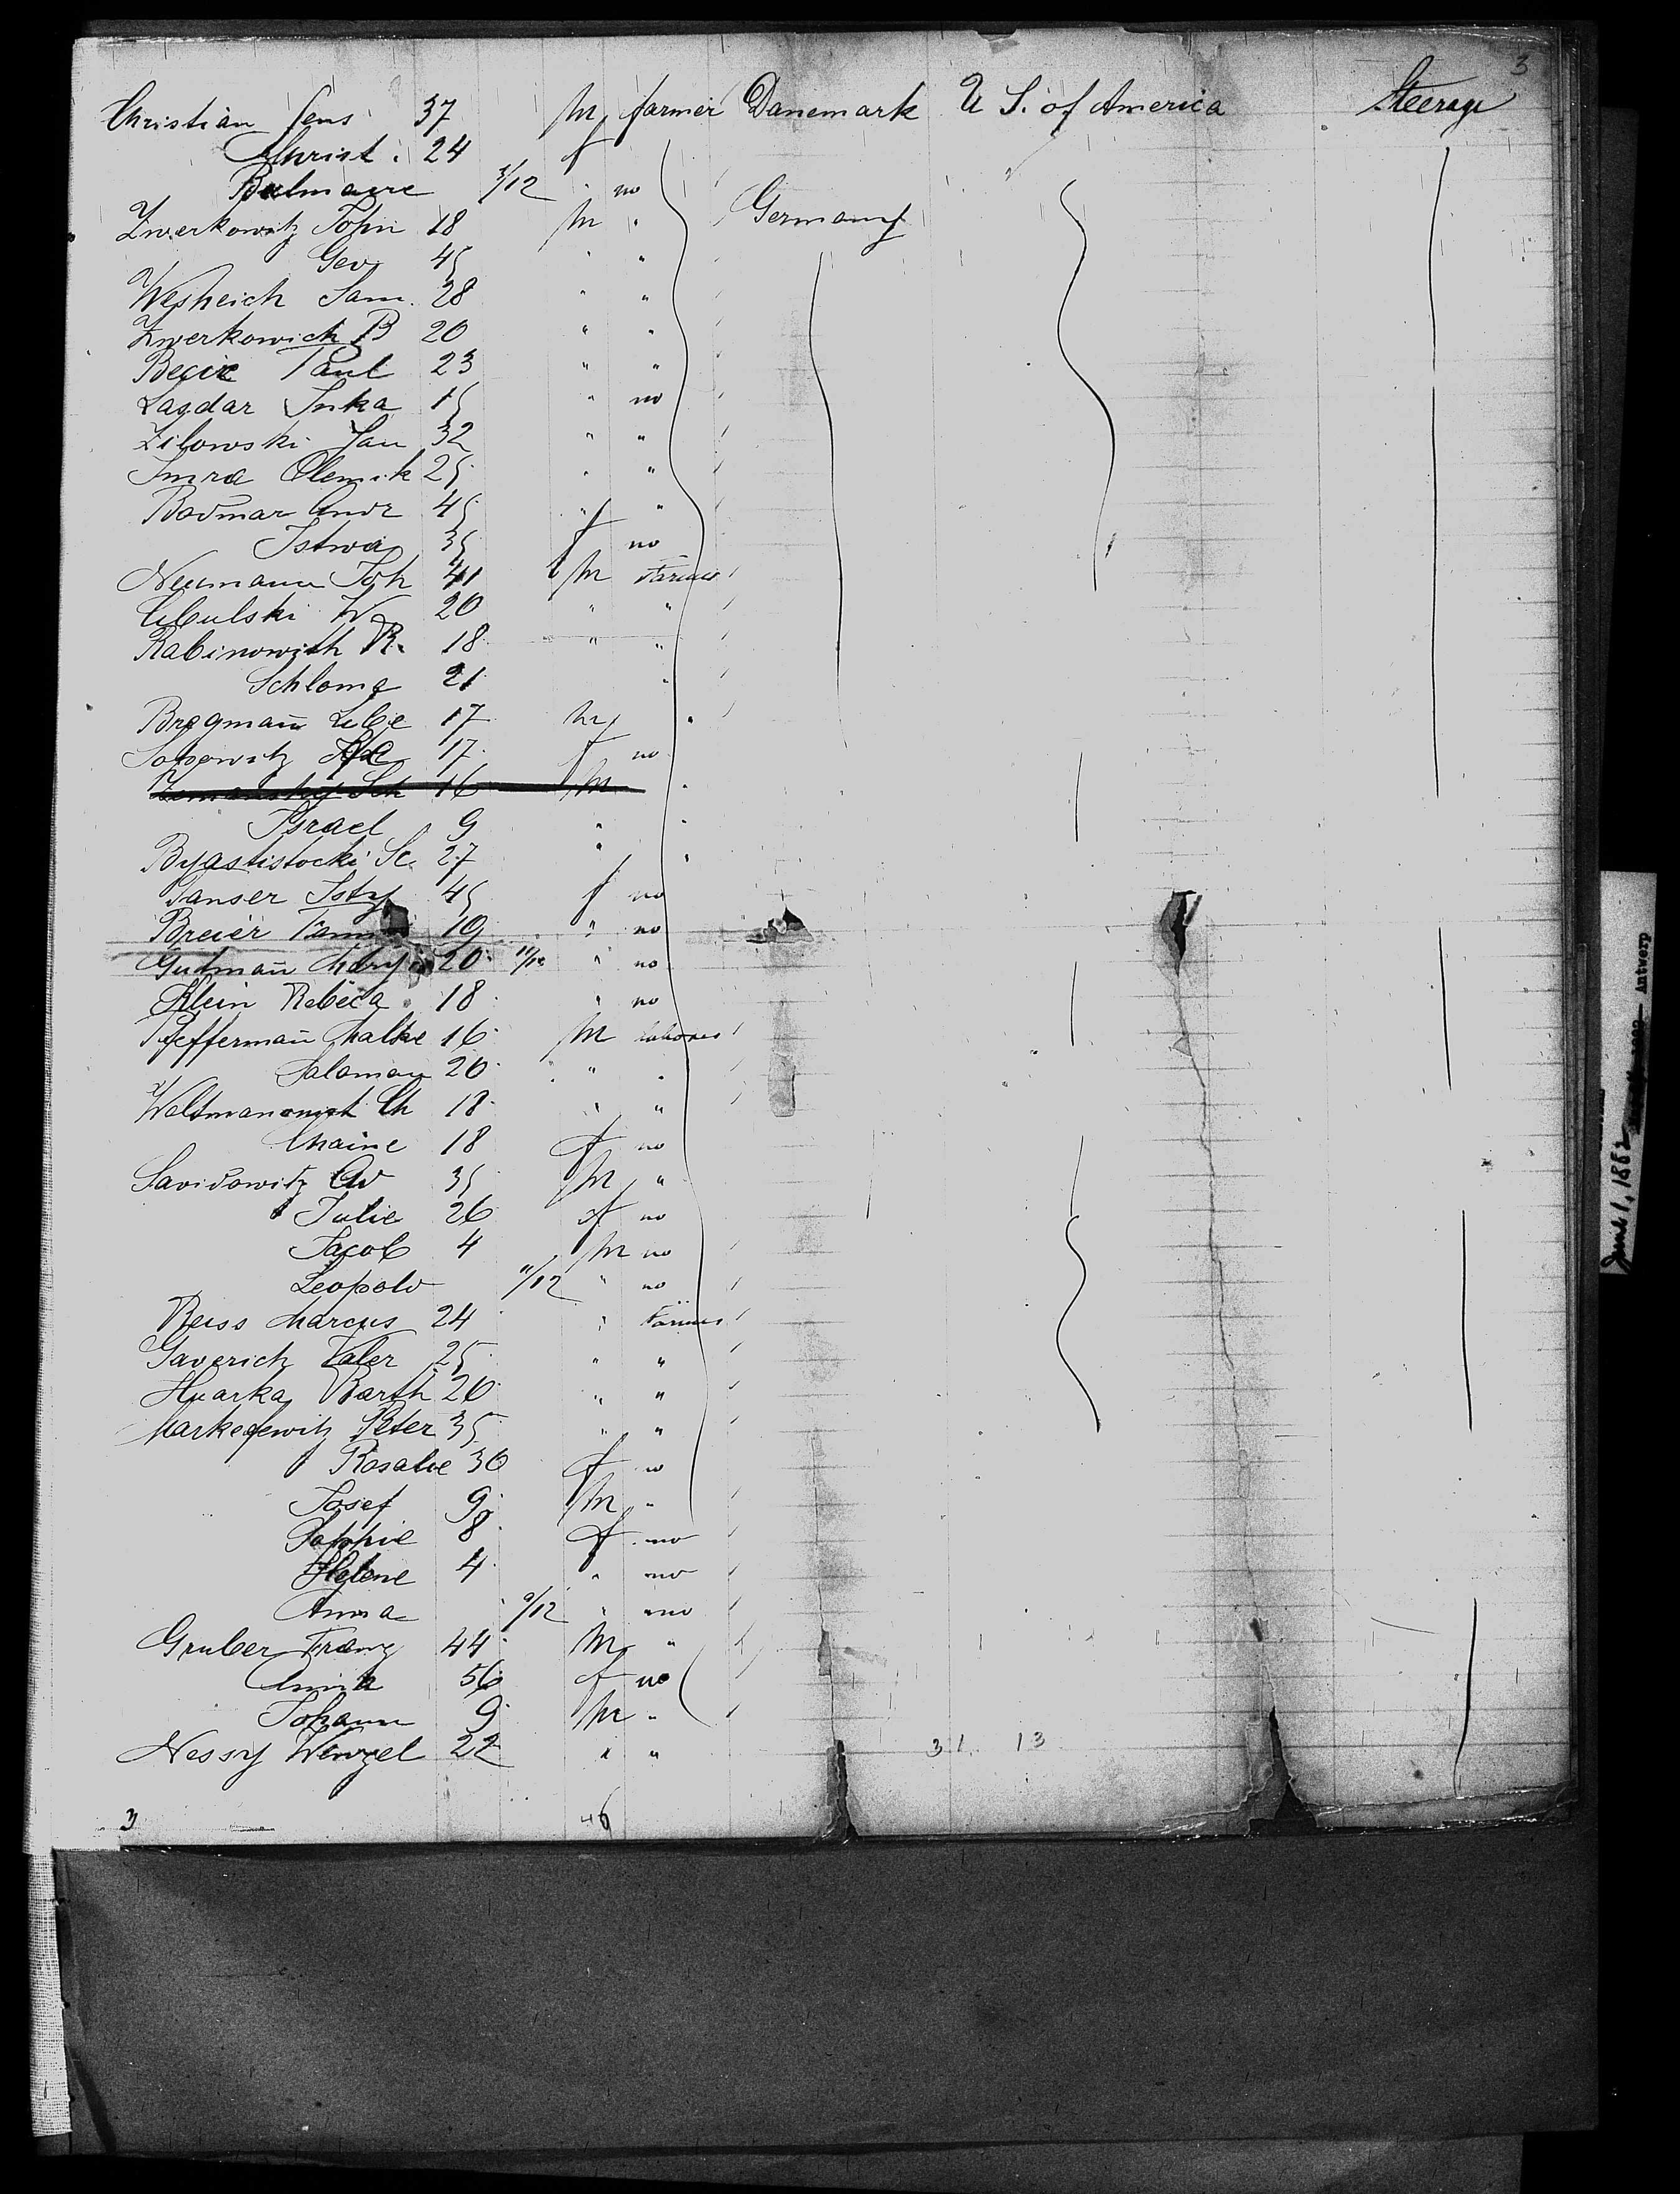 3
Christian Jens 37 m farmer Danemark U S. of America Steerage
Christ. 24 f
3/12 " no
Zwerkowitz John 18 m " Germany
Geo 45 " "
Wesheich Sam. 28 " "
Zwerkowich B 20 " "
Becir Paul 23 " "
Lagdar Inka 15 " no
Zilowski Jan 32 " "
Imra Olemik 25 " "
Bodmar Andr 45 " "
Istwa 35 f no
Neumann Joh 41 m farmer
Cibulski W 20 " "
Rabinowith R. 18 " "
Schloma 21 "
Bregmañ Libe 17 m "
17 f no
Zemansky Sch 16 m "
Israel 9 " "
Byastistocki Sc. 27 " "
Ganser Isty 45 f no
Breier 19 " no
Gutmañ Mary 20 11/12 " no
Klein Rebeca 18 " no
Pfeffermañ Malke 16 m labores
Salomon 20 " "
Ch 18 " "
Chaine 18 f no
Savidowitz Av 35 m "
Julie 26 f no
Jacob 4 m no
Leopold 11/12 " no
Reiss Marcus 24 " farmer
Gaverich Valer 25 " "
Huarka Barth 20 " "
Markefewitz Peter 35 " "
Rosalie 30 f no
Josef 9 m "
Sophie 8 f no
Helene 4 " no
Anna 9/12 " no
Gruber Franz 44 m "
Anna 56 f no
Johann 9 m "
Nessy Wenzel 22 " "
31. 13
3 46
June 1, 1882
Antwerp